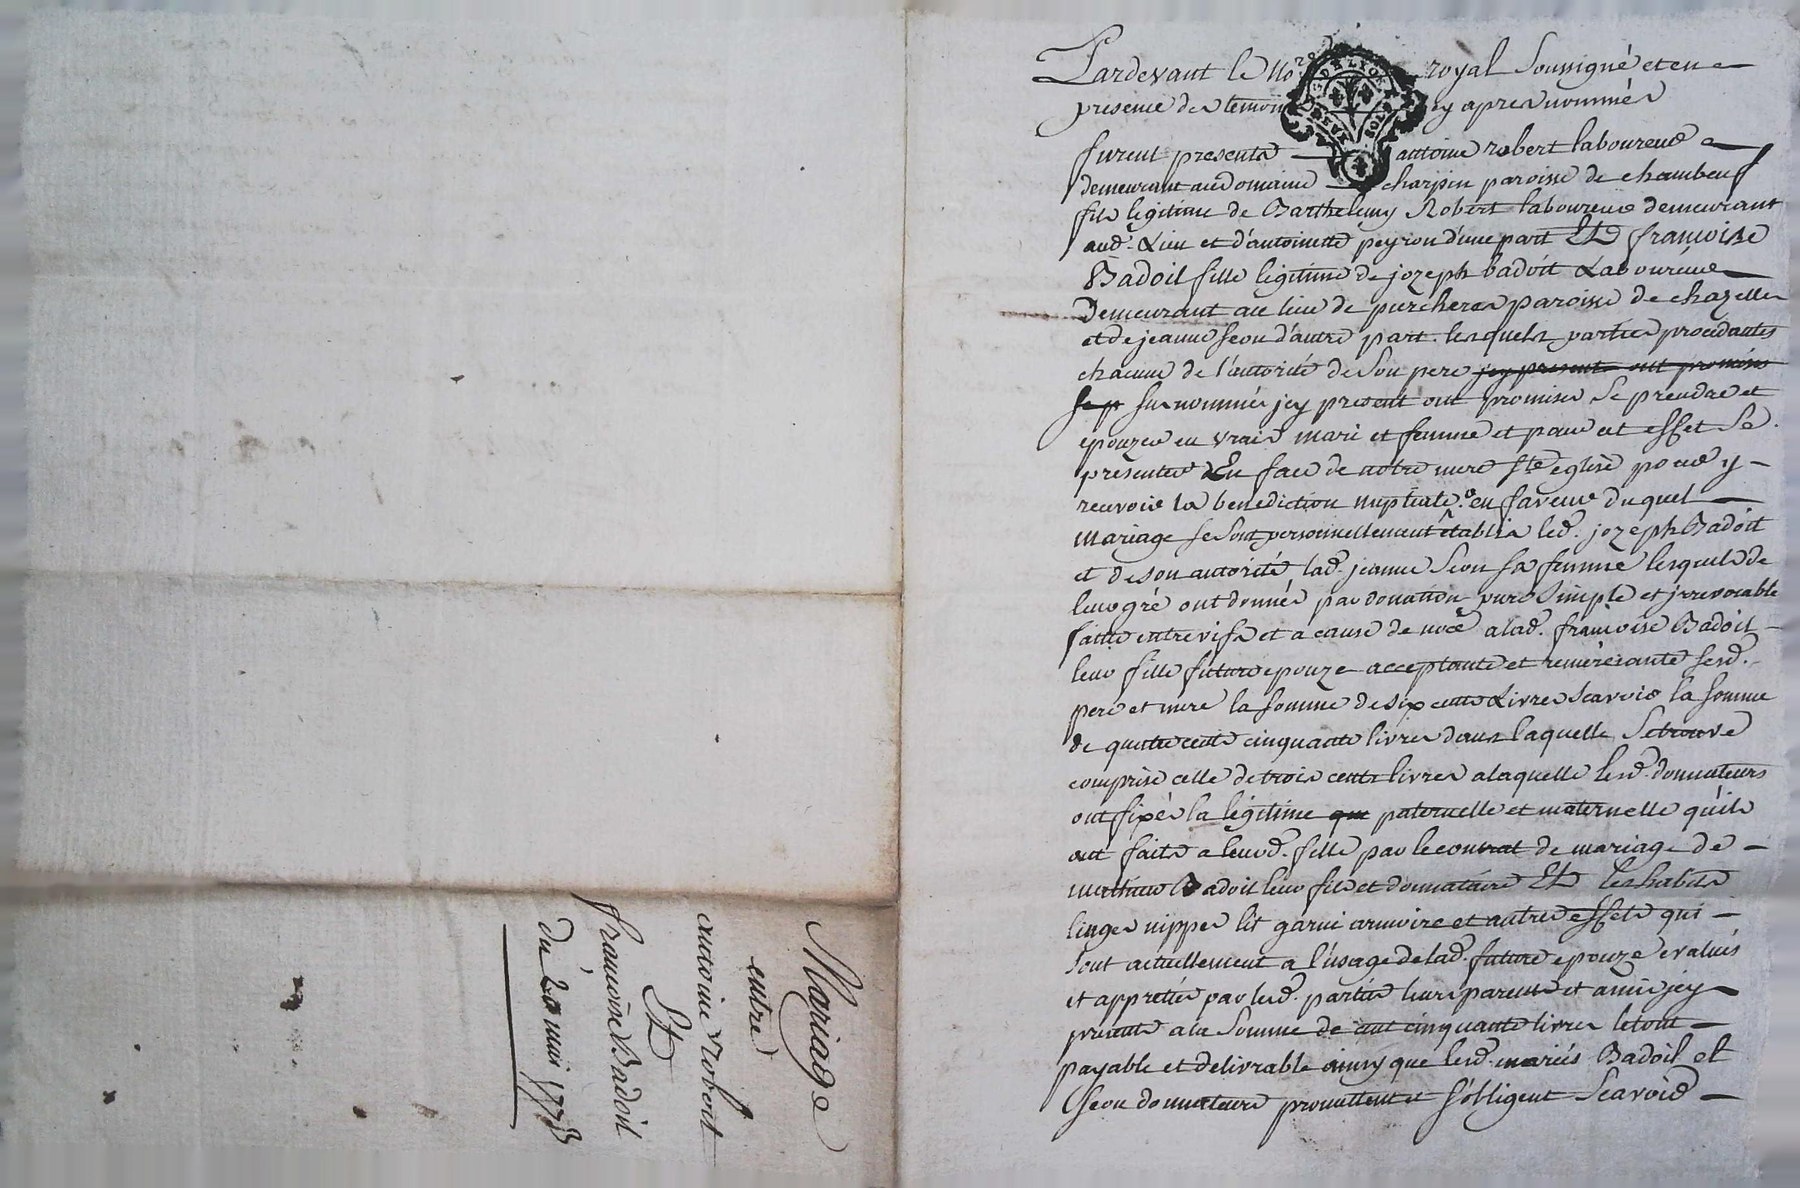 Mariage
entre
antoine robert
Et
francoise Badoil
du 20 mai 1773
Pardevant le No.re royal Soussigné et en
presence des temoins jcy apres nommés
furent presents antoine robert laboureur
demeurant au domaine charpin paroisse de chambeuf
fils legitime de Barthelemy Robert laboureur demeurant
aud. Lieu et d'antoinette peyron d'une part Et francoise
Badoil fille legitime de jozeph badoit Laboureur
Demeurant au lieu de purcheres paroisse de chazelles
et de jeanne Seon d'autre part. lesquels parties procedantes
chacune de l'autorité de Son pere jcy present ont promises
se p surnommés jcy present ont promises Se prendre et
epouzer en vrais mari et femme et pour cet effet Se
presenter En face de notre mere Ste eglise pour y
recevoir la benediction nuptiale. en faveur duquel
mariage se Sont personnellement établis led. jozeph Badoit
et de Son autorité lad. jeanne Seon Sa femme lesquels de
leur gré ont donnés par donation pure Simple et jrrevocable
faitte entre vifs et a cause de noce a lad. francoise Badoil
leur fille future epouze acceptante et remerciante sesd.
pere et mere la Somme de Six cents Livres Scavoir la Somme
de quatre cents cinquante livres dans laquelle Se trouve
comprise celle de trois cents livres a laquelle lesd. donnateurs
ont fixés la legitime que paternelle et maternelle qu'ils
ont faits a leurd. fille par le contrat de mariage de
mathieu Badoil leur fils et donnataire Et les habits
linges nippes lit garni armoire et autres effets qui
Sont actuellement a l'usage de lad. future epouze evalués
et appretiés par lesd. parties leurs parents et amis jcy
presents a la Somme de cent cinquante livres le tout
payable et delivrable ainsy que lesd. mariés Badoil et
Seon donnateurs promettent et S'obligent Scavoir